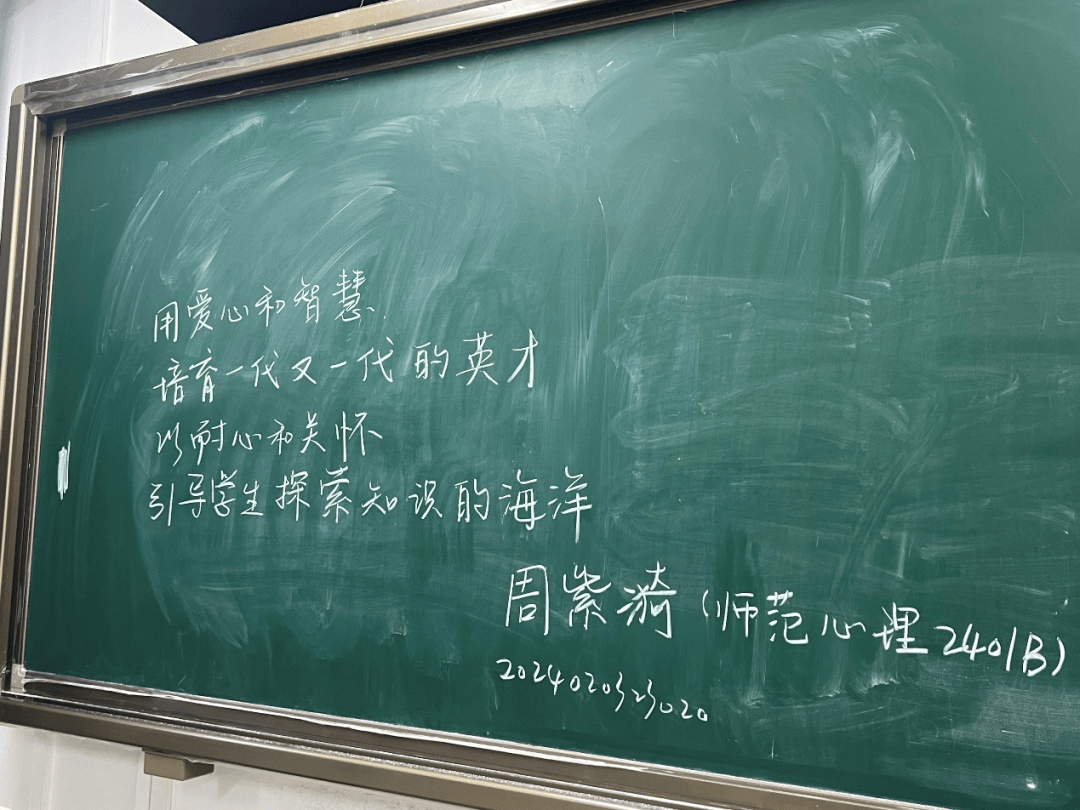 用爱心和智慧
培育一代又一代的英才
以耐心和关怀
引导学生探索知识的海洋
周紫漪(师范心理2401B)
2024020323020